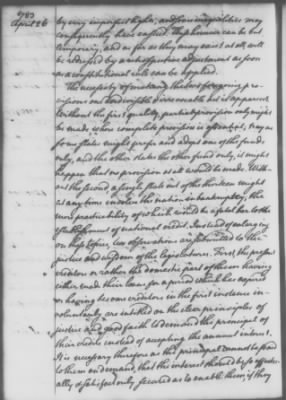 1783
April 26
by very imperfect lights, and some inequalities may
consequently have ensued. These however can be but
temporary, and as far as they may exist at all, will
be redressed by a retrospective adjustment as soon
as a constitutional rule can be applied.
The necessity of making the two foregoing pro-
visions one indivisible &
 irrevocable act is apparent.
Without the first quality, partial provision only might
be made where complete provision is essential; nay as
some states might prefer and adopt one of the funds
only, and the other states the other fund only, it might
happen that no provision at all would be made. With-
out the second, a single state out of the thirteen might
at any time involve the nation in bankruptcy, the
mere practicability of which would be a fatal bar to the
establishment of national credit. Instead of enlarging
on these topics, two observations are submitted to the
justice and wisdom of the legislatures. First, the present
creditors or rather the domestic part of them having
either made their loans for a period which has expired
or having become creditors in the first instance in-
voluntarily are entitled on the clear principles of
justice and good faith to demand the principal of
their credits instead of accepting the annual interest.
It is necessary therefore as the principal cannot be paid
to them on demand, that the interest should be so effectu-
ally & satisfactorily secured as to enable them if they